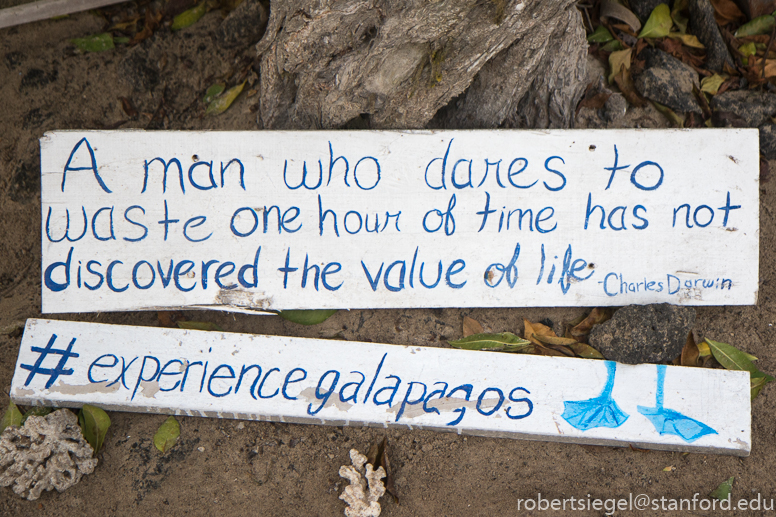 A man who dares to
waste one hour of time has not
discovered the value of life
-Charles Darwin
#experiencegalapagos
robertsiegel@stanford.edu